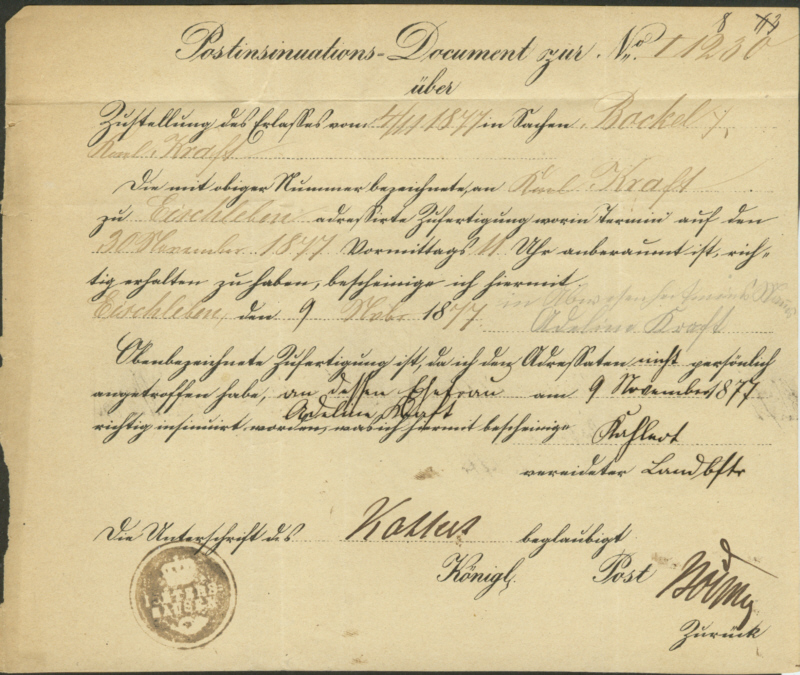 8
Postinsinuations-Document zur No. I 1230
über
Zustellung des Erlasses vom 4/11 1877 in Sachen Bockel /
Karl Kraft
Die mit obiger Nummer bezeichnete, an Karl Kraft
zu Eischleben adressirte Zufertigung worin Termin auf den
30 November 1877 Vormittags 11 Uhr anberaumt ist, rich-
tig erhalten zu haben, bescheinige ich hiermit
Eischleben, den 9 Nobr 1877 in Abwesenheit meines Mannes
Adeline Kraft
Obenbezeichnete Zufertigung ist, da ich den Adressaten nicht persönlich
angetroffen habe, an dessen Ehefrau am 9 November 1877
Adeline Kraft
richtig insinuirt worden, was ich hiermit bescheinige Kahlert
vereideter Landbftr
Die Unterschrift des Kahlert beglaubigt
Königl. Post
Zurück